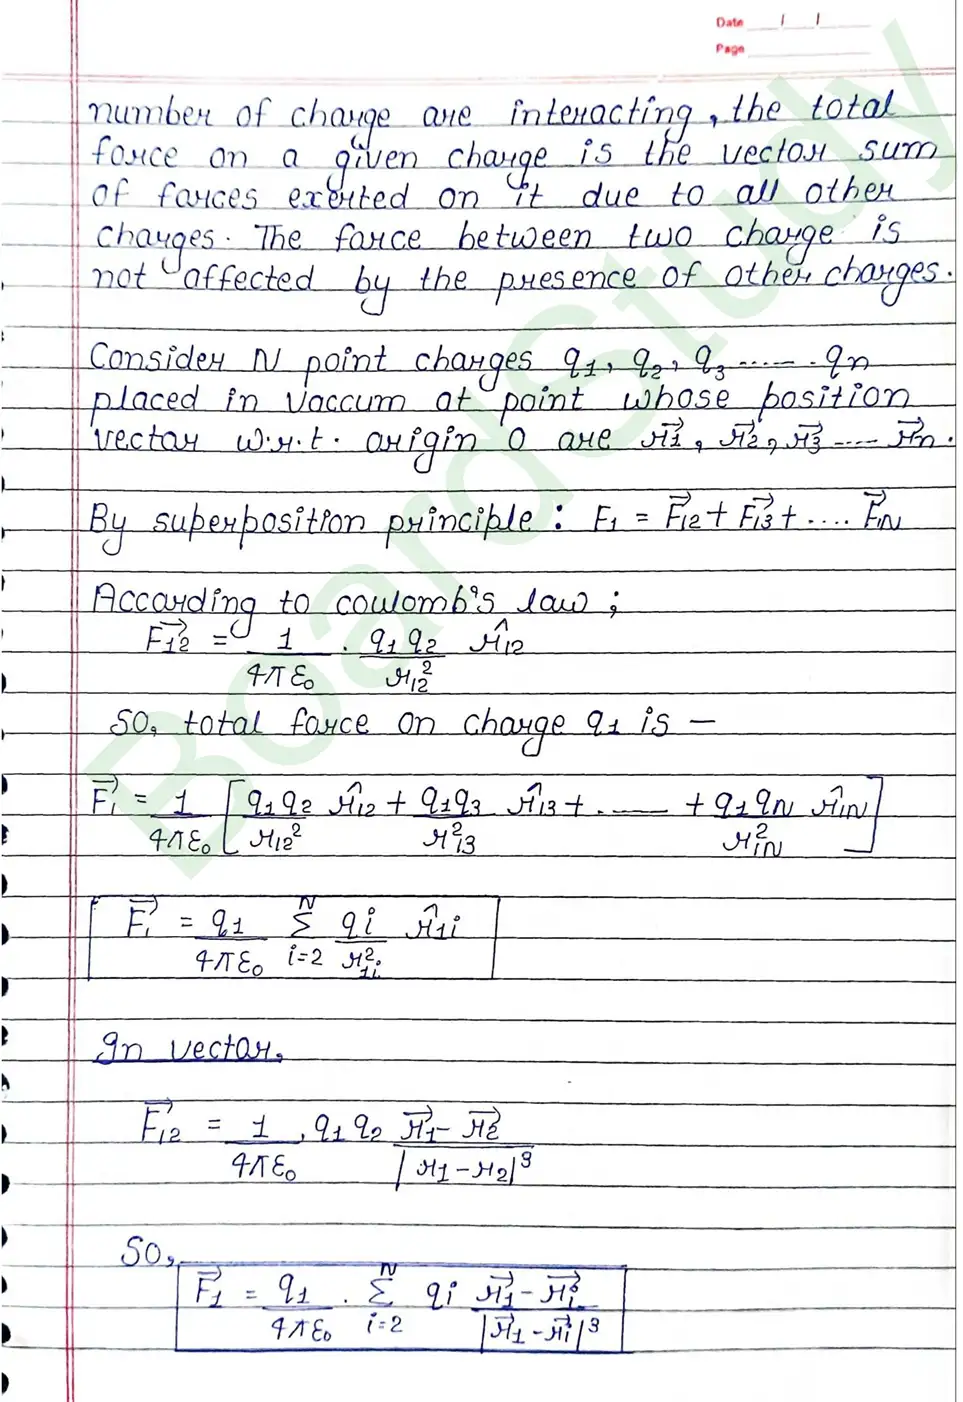 Date / /
Page
number of charge are interacting, the total
force on a given charge is the vector sum
of forces exerted on it due to all other
charges. The force between two charge is
not affected by the presence of other charges.
Consider N point charges q1, q2, q3 ....... qn
placed in vaccum at point whose position
vector w.r.t. origin O are r⃗1, r⃗2, r⃗3 .... r⃗n.
By superposition principle : F1 = F⃗12 + F⃗13 + .... F⃗1N
According to coulomb's law ;
F⃗12 = 1/4πε₀ . q1q2/r12² r̂12
SO, total force on charge q1 is –
F⃗1 = 1/4πε₀ [q1q2/r12² r̂12 + q1q3/r²13 r̂13 + ...... + q1qN/r²1N r̂1N]
F⃗1 = q1/4πε₀ N Σ i=2 qi/r²1i r̂1i
In vector,
F⃗12 = 1/4πε₀ . q1q2 r⃗1 - r⃗2/|r1 - r2|³
SO,
F⃗1 = q1/4πε₀ . N Σ i=2 qi r⃗1 - r⃗i/|r⃗1 - r⃗i|³
BoardStudy